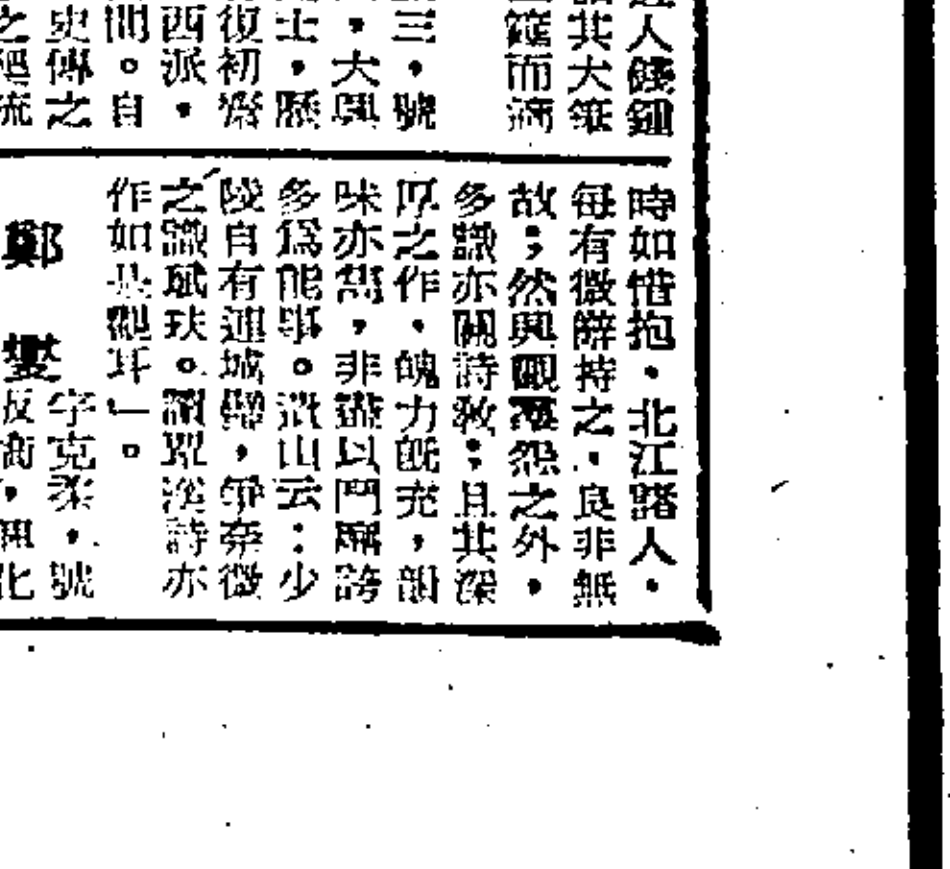 人錢鍾
其大筆
筵而
三，號
，大興
士，歷
復初齋
西派，
間。自
史傳之
之絕流
時如惜抱，北江諸人，
每有微辭持之，良非無
故；然興觀羣怨之外，
多識亦關詩教；且其深
厚之作，魄力旣充，韻
味亦雋，非盡以鬥靡誇
多爲能事。遺山云：少
陵自有連城璧，爭奈微
之識珷玞。讀覃溪詩亦
作如是觀耳」。
鄭燮
字克柔，號
板橋，興化